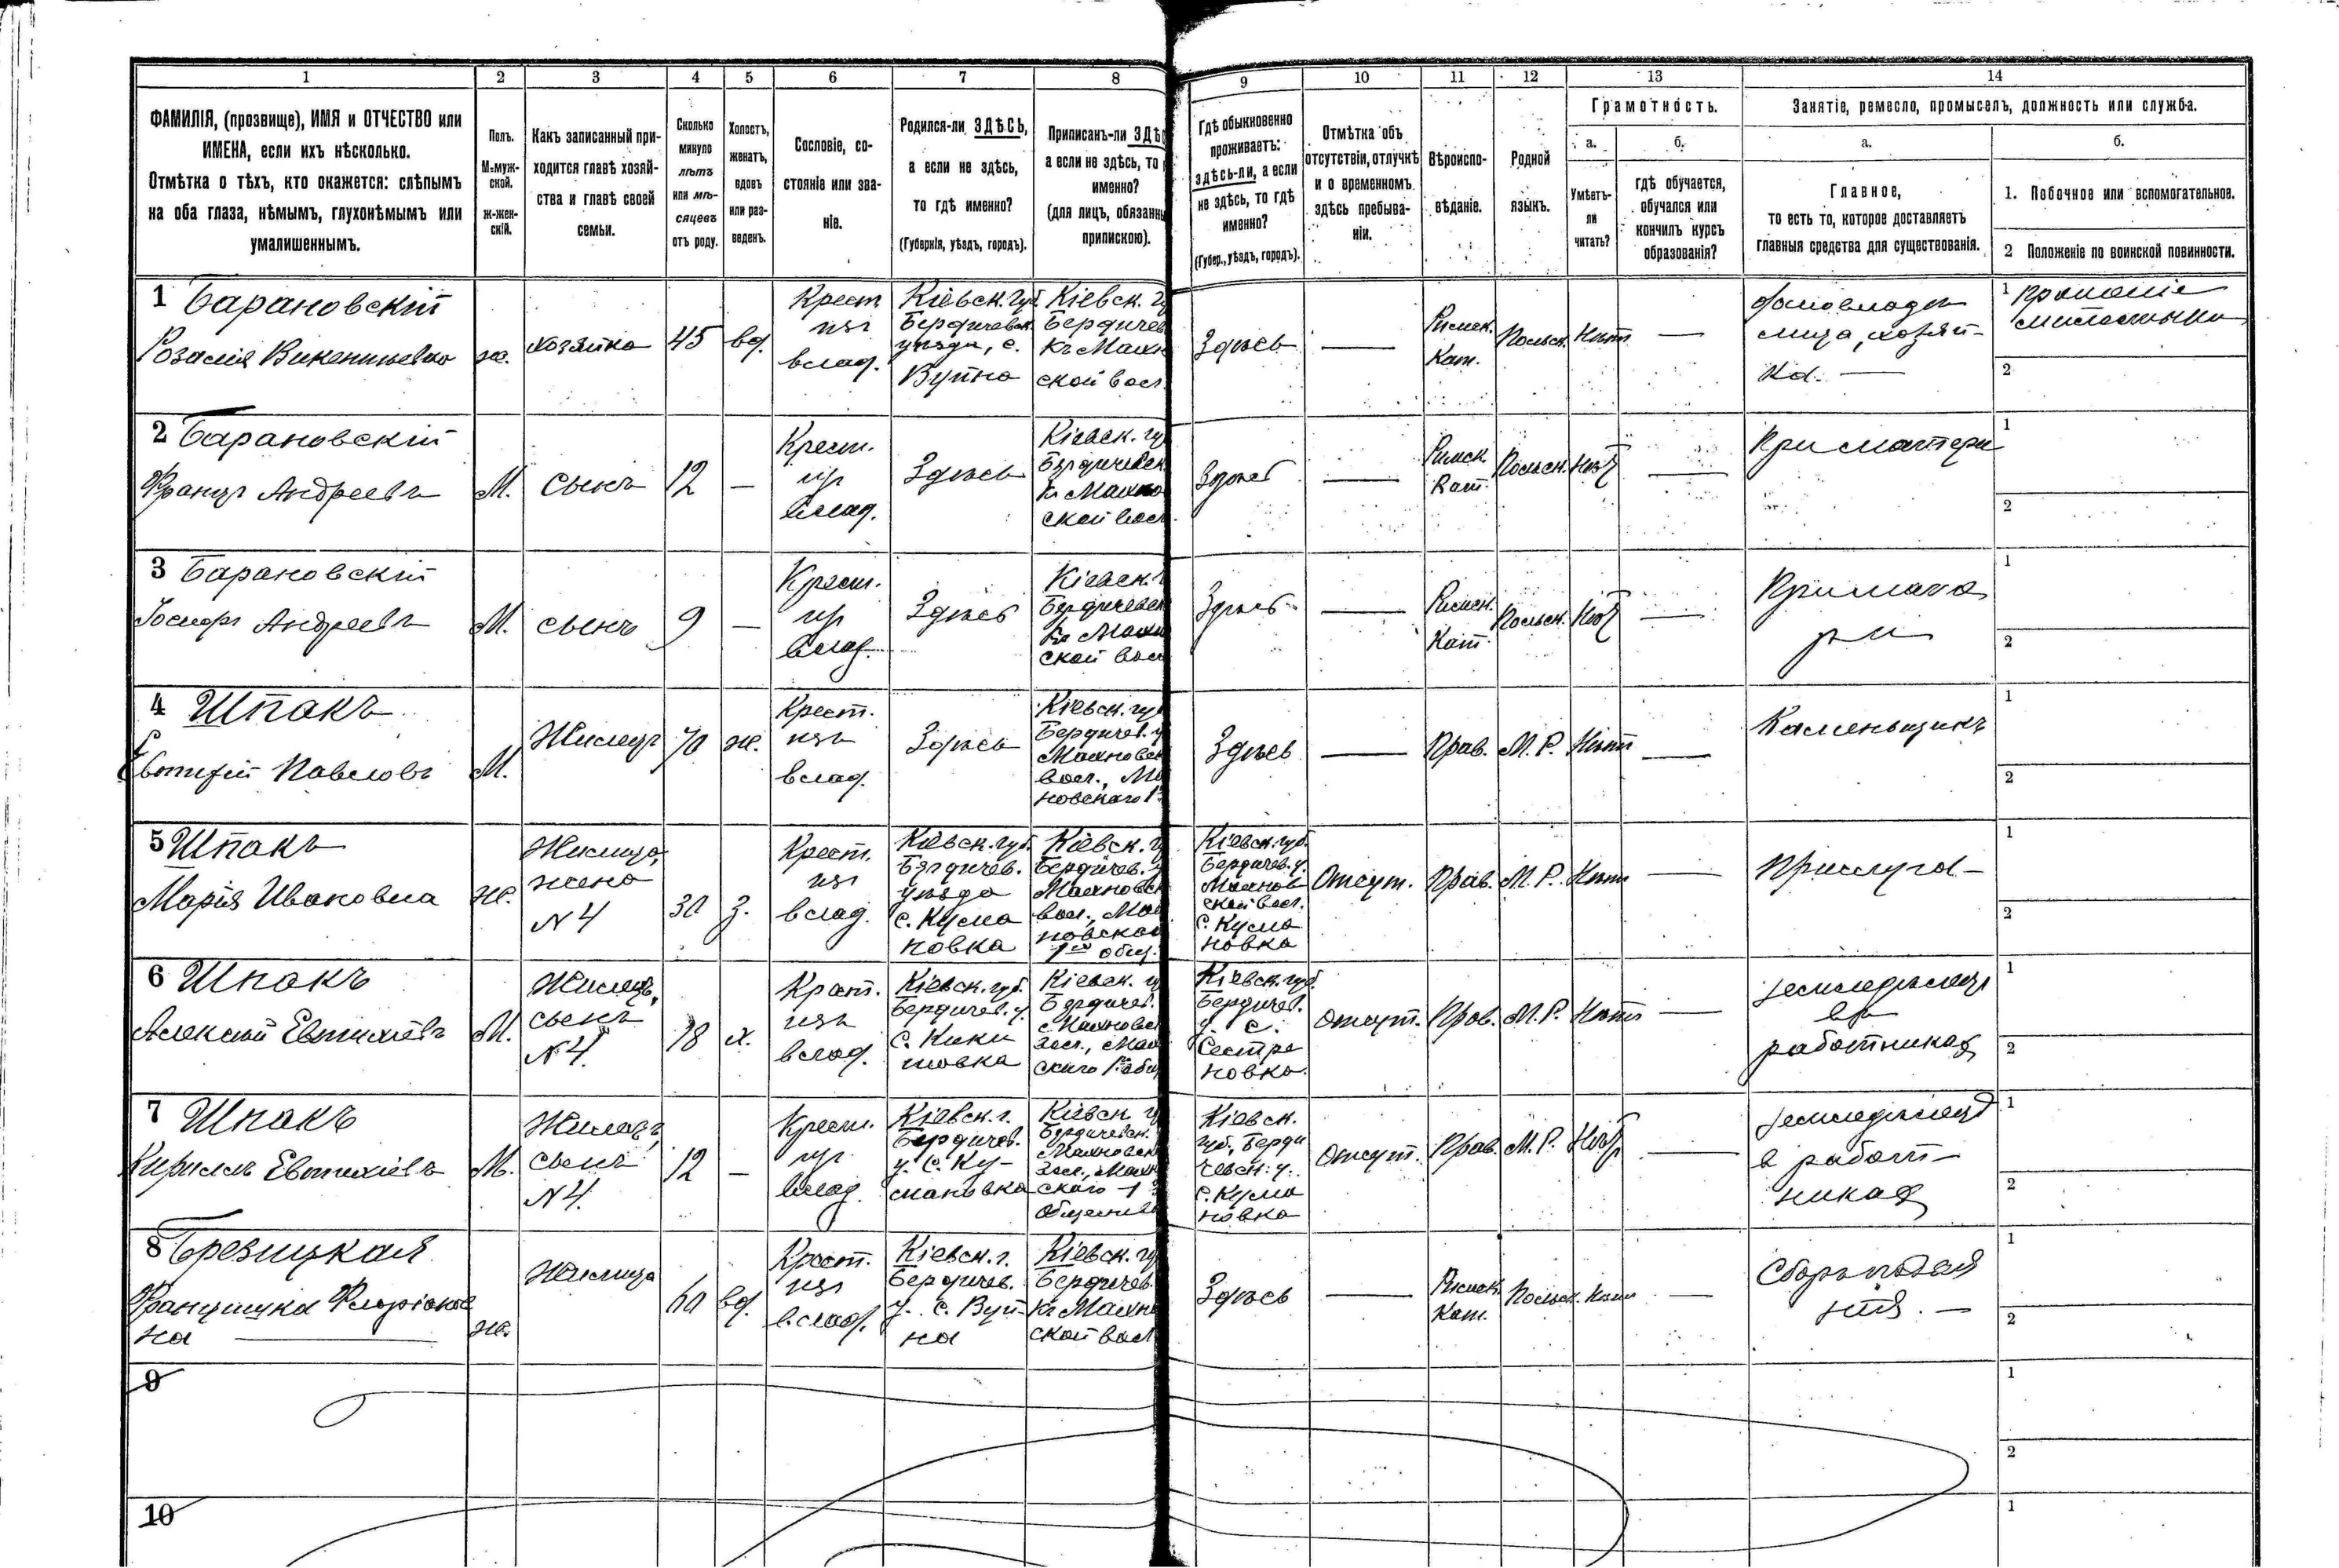 1 2 3 4 5 6 7 8 9 10 11 12 13 14
ФАМИЛІЯ, (прозвище), ИМЯ и ОТЧЕСТВО или
ИМЕНА, если ихъ нѣсколько.
Отмѣтка о тѣхъ, кто окажется: слѣпымъ
на оба глаза, нѣмымъ, глухонѣмымъ или
умалишеннымъ.
Полъ.
М=муж-
ской.
ж-жен-
скій.
Какъ записанный при-
ходится главѣ хозяй-
ства и главѣ своей
семьи.
Сколько
минуло
лѣтъ
или мѣ-
сяцевъ
отъ роду.
Холостъ,
женатъ,
вдовъ
или раз-
веденъ.
Сословіе, со-
стояніе или зва-
ніе.
Родился-ли ЗДѢСЬ,
а если не здѣсь,
то гдѣ именно?
(Губернія, уѣздъ, городъ).
Приписанъ-ли
а если не здѣсь, то
именно?
(для лицъ, обязанн
припискою).
Гдѣ обыкновенно
проживаетъ:
здѣсь-ли, а если
не здѣсь, то гдѣ
именно?
(Губер., уѣздъ, городъ).
Отмѣтка объ
отсутствіи, отлучкѣ
и о временномъ
здѣсь пребыва-
ніи.
Вѣроиспо-
вѣданіе.
Родной
языкъ.
Грамотность.
а.
Умѣетъ-
ли
читать?
б.
гдѣ обучается,
обучался или
кончилъ курсъ
образованія?
Занятіе, ремесло, промыселъ, должность или служба.
а.
Главное,
то есть то, которое доставляетъ
главныя средства для существованія.
б.
1. Побочное или вспомогательное.
2 Положеніе по воинской повинности.
1 Барановскій
Розалія Викентьевна
ж.
хозяйка
45
вд.
Крест
изъ
влад.
Кіевск. губ.
Бердичевск.
уѣзда, с.
Вуйна
Кіевск. г
Бердичев
къ Махн
ской вол.
Здѣсь
—
Римск.
Кат.
Польск.
Нѣтъ
—
домовладѣ
лица, хозяй-
ка. —
1
2
2 Барановскій
Францъ Андреевъ
М.
сынъ
12
—
Крест.
изъ
влад.
Здѣсь
Кіевск. гу
Бердичевск
къ Махно
ской вол.
Здѣсь
—
Римск.
Кат.
Польск.
Нѣтъ
—
При матери
1
2
3 Барановскій
Іосифъ Андреевъ
М.
сынъ
9
—
Крест.
изъ
влад.
Здѣсь
Кіевск. г
Бердичевск
къ Махн
ской вол
Здѣсь
—
Римск.
Кат.
Польск.
Нѣтъ
—
При мате
ри
1
2
4 Шпакъ
Евтихій Павловъ
М.
Жилецъ
70
ж.
Крест.
изъ
влад.
Здѣсь
Кіевск. гу
Бердичев. у
Махновск
вол., Ма
новскаго 1
Здѣсь
—
Прав.
М. Р.
Нѣтъ
—
Каменьщикъ
1
2
5 Шпакъ
Марія Ивановна
ж.
Жилица,
жена
№ 4
30
з.
Крест.
изъ
влад.
Кіевск. губ.
Бердичев.
уѣзда
с. Кума
новка
Кіевск. г
Бердичев. у
Махновск
вол., Мах
новскаг
1го общ.
Кіевск. губ.
Бердичев. у.
Махнов
ской вол.
с. Кума
новка
Отсут.
Прав.
М. Р.
Нѣтъ
—
Прислуга —
1
2
6 Шпакъ
Алексѣй Евтихіевъ
М.
Жилецъ,
сынъ
№ 4.
18
х.
Крест.
изъ
влад.
Кіевск. губ.
Бердичев. у.
с. Кики
шовка
Кіевск. г
Бердичев.
Махновск
вол., Мах
скаго 1го общ
Кіевск. губ.
Бердичев.
у. с.
Сестре
новка.
Отсут.
Прав.
М. Р.
Нѣтъ
—
земледѣлецъ
въ
работникахъ
1
2
7 Шпакъ
Кириллъ Евтихіевъ
М.
Жилецъ,
сынъ
№ 4.
12
—
Крест.
изъ
влад.
Кіевск. г.
Бердичев.
у. с. Ку-
мановка
Кіевск г
Бердичевск.
Махновск
вол., Махн
скаго 1
Обществ
Кіевск.
губ., Берди
чевск. у.
с. Кума
новка
Отсут.
Прав.
М. Р.
Нѣтъ
—
земледѣлецъ
в работ-
никахъ
1
2
8 Брезицкая
Францишка Флоріанов
на —
ж.
Жилица
60
вд.
Крест.
изъ
влад.
Кіевск. г.
Бердичев.
у. с. Вуй
на
Кіевск. гу
Бердичев.
къ Махн
ской вол
Здѣсь
—
Римск.
Кат.
Польск.
Нѣтъ
—
Сборъ подая
нія. —
1
2
9
1
2
10
1